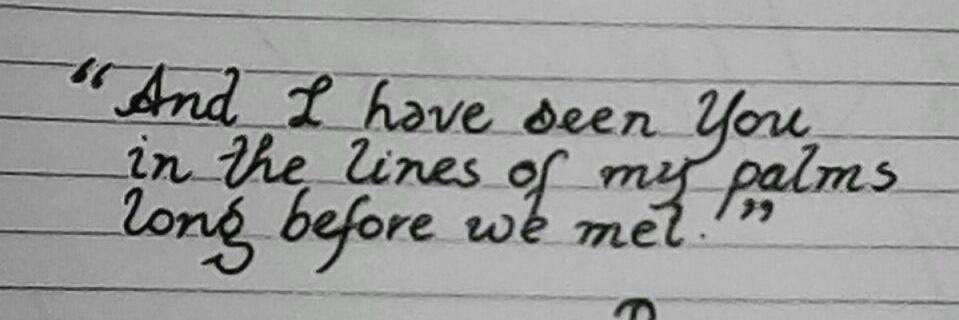 “And I have seen You
in the lines of my palms
long before we met.”